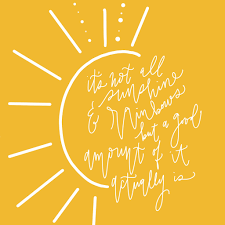 it's not all
sunshine
& rainbows
but a good
amount of it
actually is